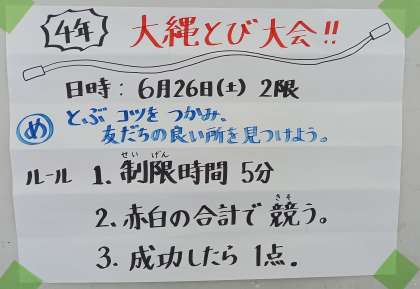 4年 大縄とび大会!!
日時:6月26日(土) 2限
め とぶ コツを つかみ、
友だちの良い所を見つけよう。
ルール 1. 制限時間 5分
2. 赤白の合計で競う。
3. 成功したら 1点.